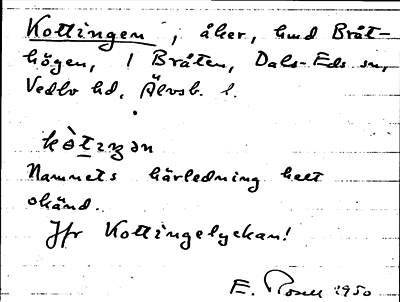 Kottingen, åker, hmd Bråt-
högen, / Bråten, Dals-Eds sn,
Vedbo hd, Älvsb. l.
kòtıŋən
Namnets härledning helt
okänd.
Jfr Kottingelyckan!
E. Rosell 1950